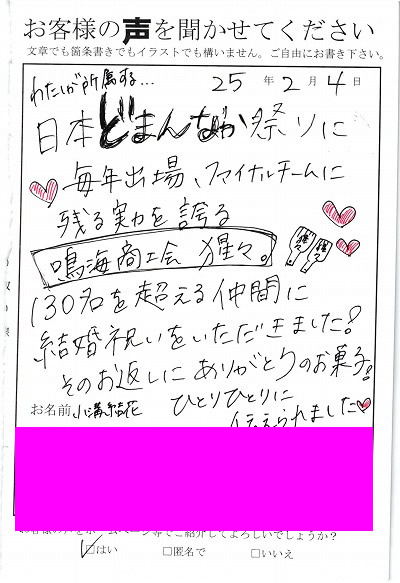 お客様の声を聞かせてください
文章でも箇条書きでもイラストでも構いません。ご自由にお書き下さい。
25年2月4日
わたしが所属する…
日本どまんなか祭りに
毎年出場、ファイナルチームに
残る実力を誇る
鳴海商工会 猩々。
130名を超える仲間に
結婚祝いをいただきました!
そのお返しにありがとうのお菓子!
お名前 小溝結花
ひとりひとりに
伝えられました
ご紹介してよろしいでしょうか?
☑はい □匿名で □いいえ